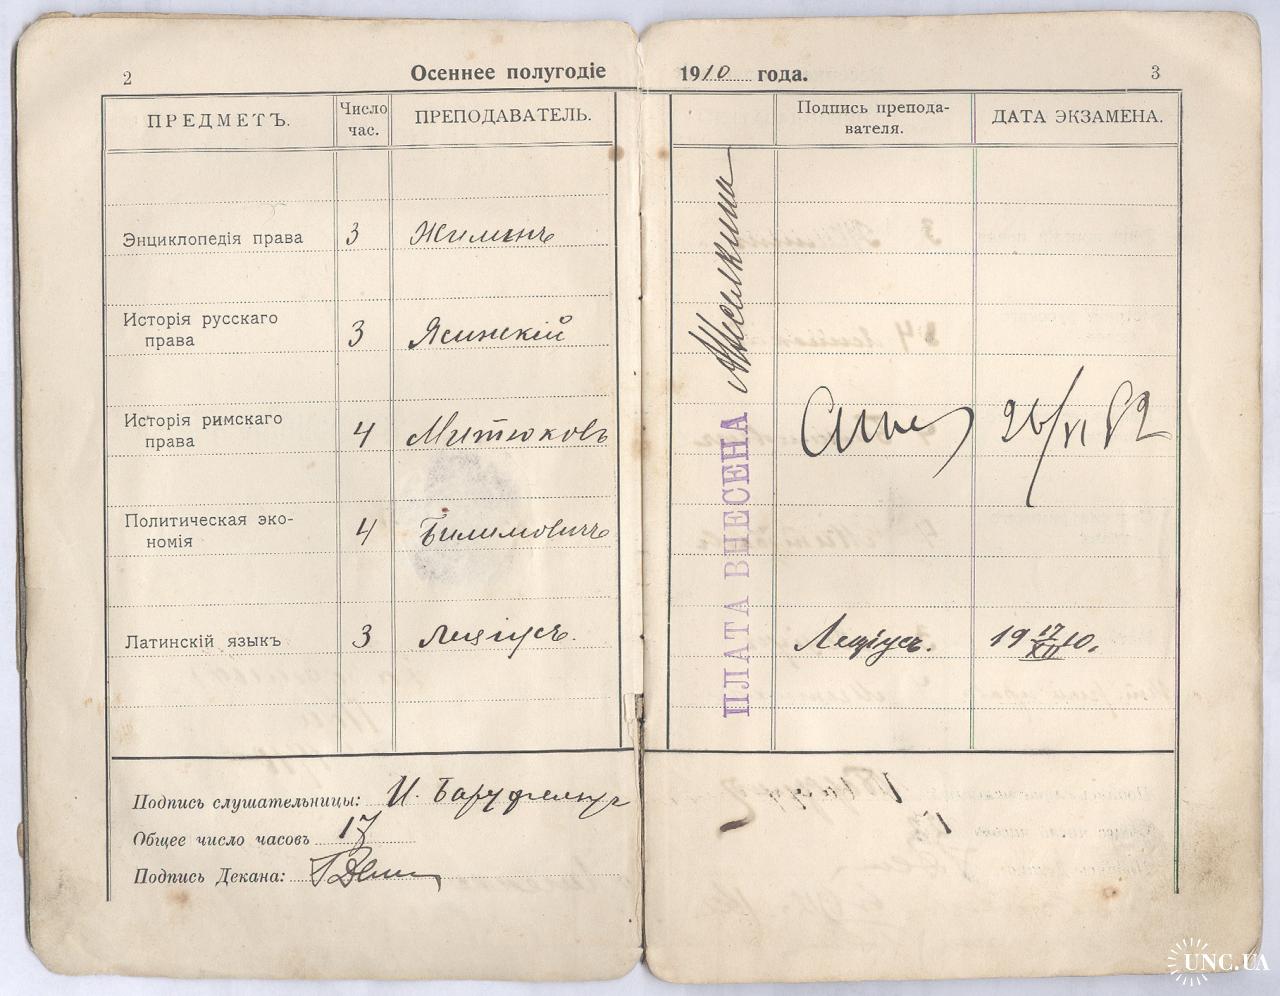 2
Осеннее полугодіе
1910 года.
3
ПРЕДМЕТЪ.
Число час.
ПРЕПОДАВАТЕЛЬ.
Подпись препода-
вателя.
ДАТА ЭКЗАМЕНА.
Энциклопедія права 3 Жилинъ
Исторія русскаго
права 3 Ясинскій
Исторія римскаго
права 4 Митюковъ
Политическая эко-
номія 4 Билимовичъ
Латинскій языкъ 3 Леціусъ. Леціусъ. 19 17/XII 10.
ПЛАТА ВНЕСЕНА
Подпись слушательницы: И.
Общее число часовъ 17
Подпись Декана:
UNC.UA